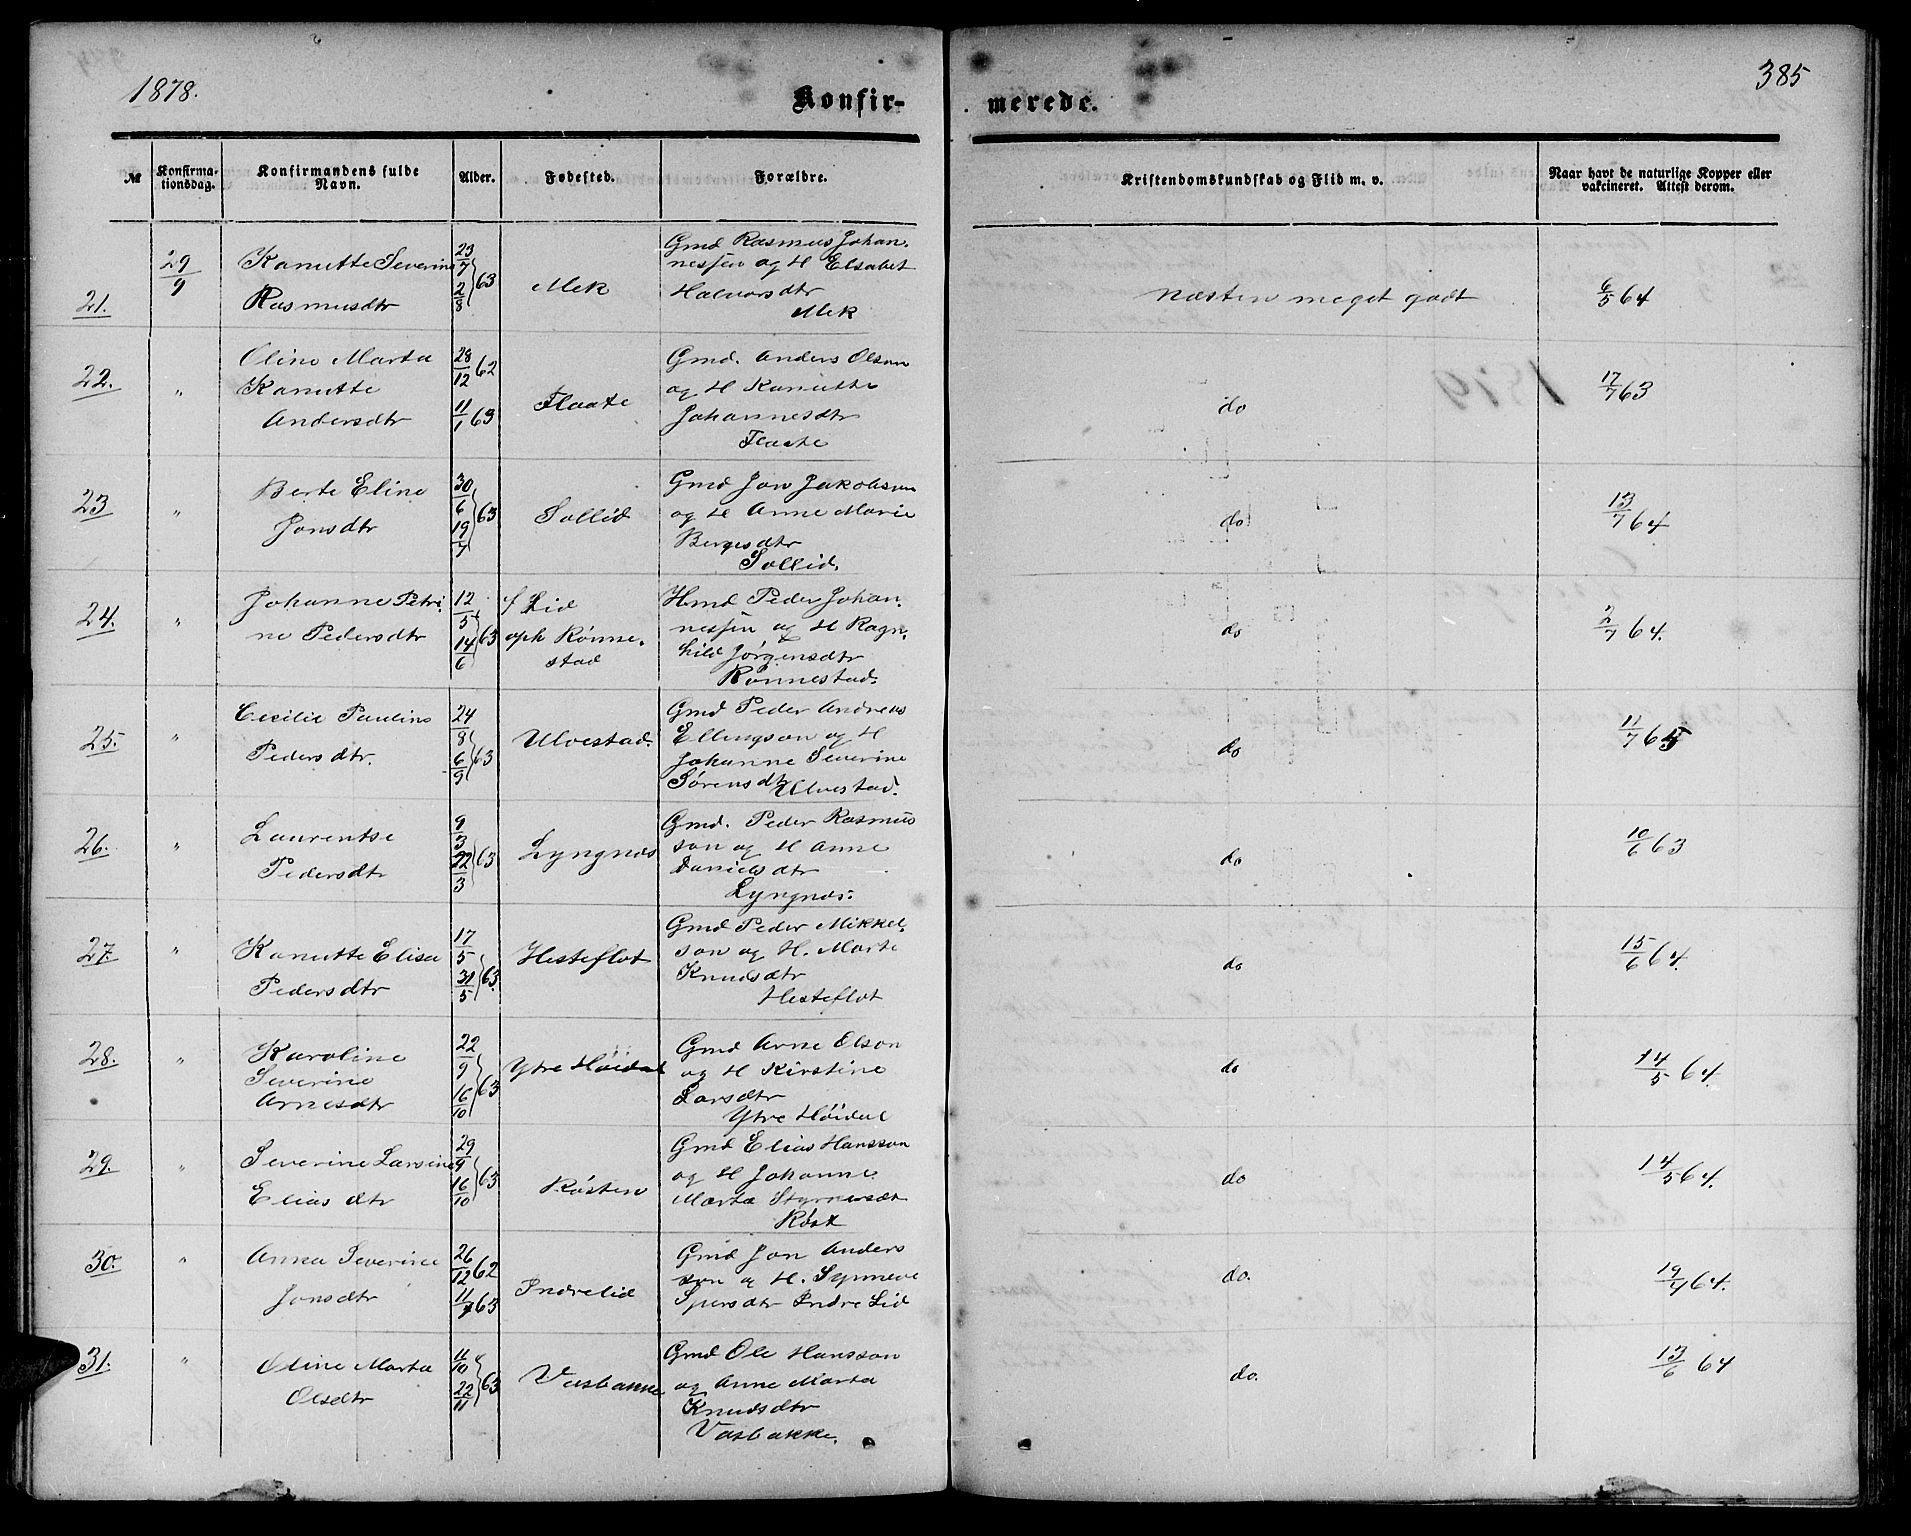 1878.
385
Konfir- merede.
№
Konfirma-
tionsdag.
Konfirmandens fulde
Navn.
Alder.
Fødested.
Forældre.
Kristendomskundskab og Flid m. v.
Naar havt de naturlige Kopper eller
vakcineret. Attest derom.
21.
29/9
Kanutte Severine
Rasmusdtr
23/7 2/8 63
Mek
Gmd Rasmus Johan-
nessen og H Elsabet
Halvorsdtr
Mek
næsten meget godt
6/5 64
22.
"
Oline Marta
Kanutte
Andersdtr
28/12 62
11/1 63
Flaate
Gmd. Anders Olson
og H Kanutte
Johannesdtr
Flaate
do
17/7 63
23
"
Berte Eline
Jonsdtr
30/6 19/7 63
Sollid
Gmd Jon Jakobson
og H Anne Marie
Bergesdtr
Sollid.
do
13/7 64
24.
"
Johanne Petri-
ne Pedersdtr
12/5 14/6 63
f Lid
oph Rønne-
stad
Hmd Peder Johan-
nessen og H Ragn-
hild Jørgensdtr
Rønnestad.
do
2/7 64.
25.
"
Cecilie Pauline
Pedersdtr.
24/8 6/9 63
Ulvestad.
Gmd Peder Andreas
Ellingson og H
Johanne Severine
Sørensdtr Ulvestad.
do
11/7 65
26.
"
Laurentse
Pedersdtr
9/3 22/3 63
Lyngnæs
Gmd. Peder Rasmus
son og H Anne
Danielsdtr
Lyngnæs.
do
10/6 63
27.
"
Kanutte Elisa
Pedersdtr
17/5 31/5 63.
Hesteflot
Gmd Peder Mikkel-
son og H. Marte
Knudsdtr
Hesteflot
do
15/6 64.
28.
"
Karoline
Severine
Arnesdtr
22/9 16/10 63
Ytre Høidal
Gmd Arne Olson
og H Kirstine
Larsdtr
Ytre Høidal
do
14/5 64.
29.
"
Severine Larsine
Eliasdtr
29/9 16/10 63
Røsten
Gmd Elias Hansson
og H Johanne
Marta Styrnesdt
Røst
do
14/5 64.
30.
"
Anna Severine
Jonsdtr
26/12 62
11/1 63
Indrelid
Gmd Jon Anders
son og H. Synneve
Spersdtr Indre Lid
do.
64.
31.
"
Oline Marta
Olsdtr
11/10 22/11 63
Vasbakke
Gmd Ole Hansson
og Anne Marta
Knudsdtr
Vasbakke.
do.
13/6 64